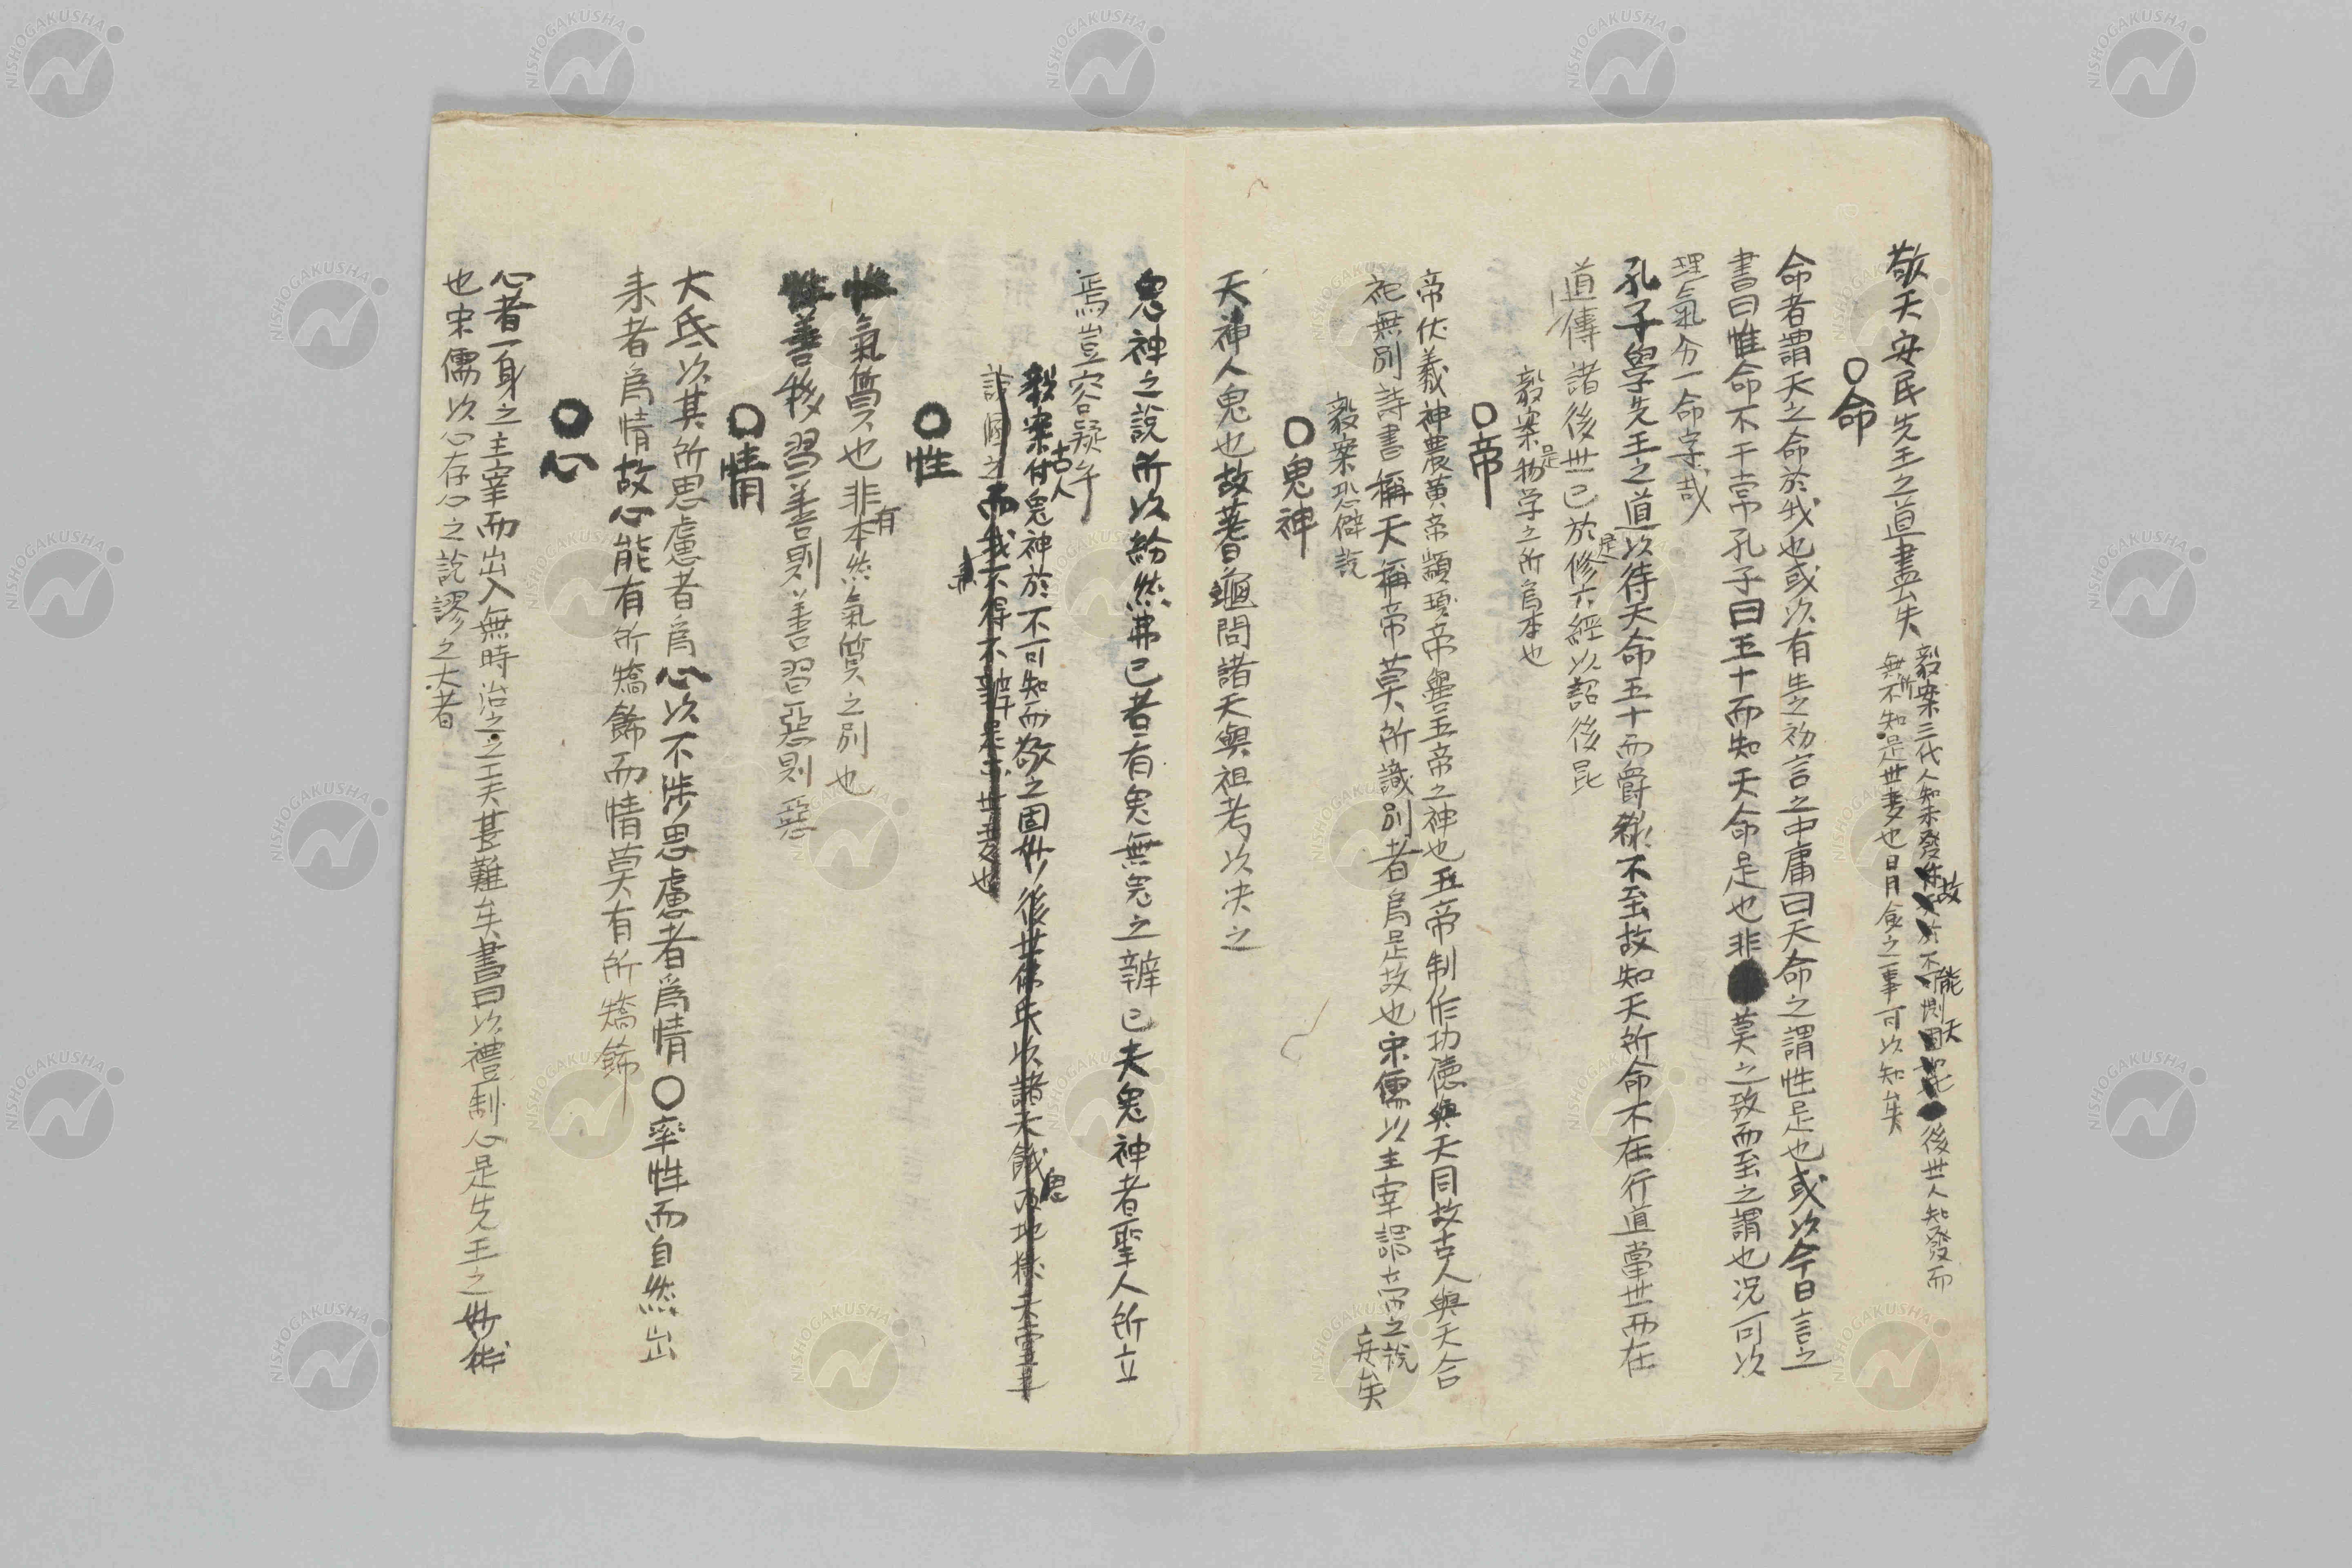 敬天安民先王之道盡矣
毅案三代人知未發故於不能測天後世人知發而
無所不知是世妻也日月食之事可以知矣
○命
命者謂天之命於我也或以有生之初言之中庸曰天命之謂性是也或以今日言之
書曰惟命不于常孔子曰五十而知天命是也非莫之致而至之謂也況可以
理氣分一命字哉
孔子學先王之道以待天命五十而爵祿不至故知天所命不在行道當世而在
道傳諸後世已於是修六經以詔後昆
毅案是物学之所為本也
○帝
帝伏羲神農黃帝顓頊帝嚳五帝之神也五帝制作功德與天同故古人與天合
祀無別詩書稱天稱帝莫所識別者爲是故也宋儒以主宰謂帝之說
妄矣
毅案恐僻説
○鬼神
天神人鬼也故蓍龜問諸天與祖考以决之
鬼神之說所以紛然弗已者有鬼無鬼之辨已夫鬼神者聖人所立
焉豈容疑乎
毅案古人付鬼神於不可知而敬之固妙後世佛氏以諸天餓鬼及地獄天堂
說個之而我不得不辨是亦世妻也
○性
性氣質也非有本然氣質之別也
性善移習善則善習惡則惡
○情
大氐以其所思慮者爲心以不涉思慮者爲情○率性而自然出
来者爲情故心能有所矯飾而情莫有所矯飾
○心
心者一身之主宰而出入無時治之之工夫甚難矣書曰以禮制心是先王之妙術
也宋儒以心存心之說謬之大者
NISHOGAKUSHA